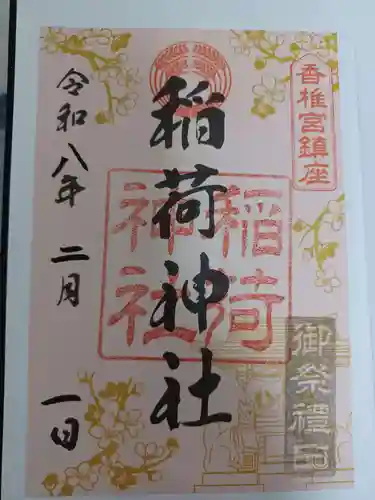 香椎宮鎮座
稲荷神社
稲荷
神社
御祭禮
令和八年 二月 一日